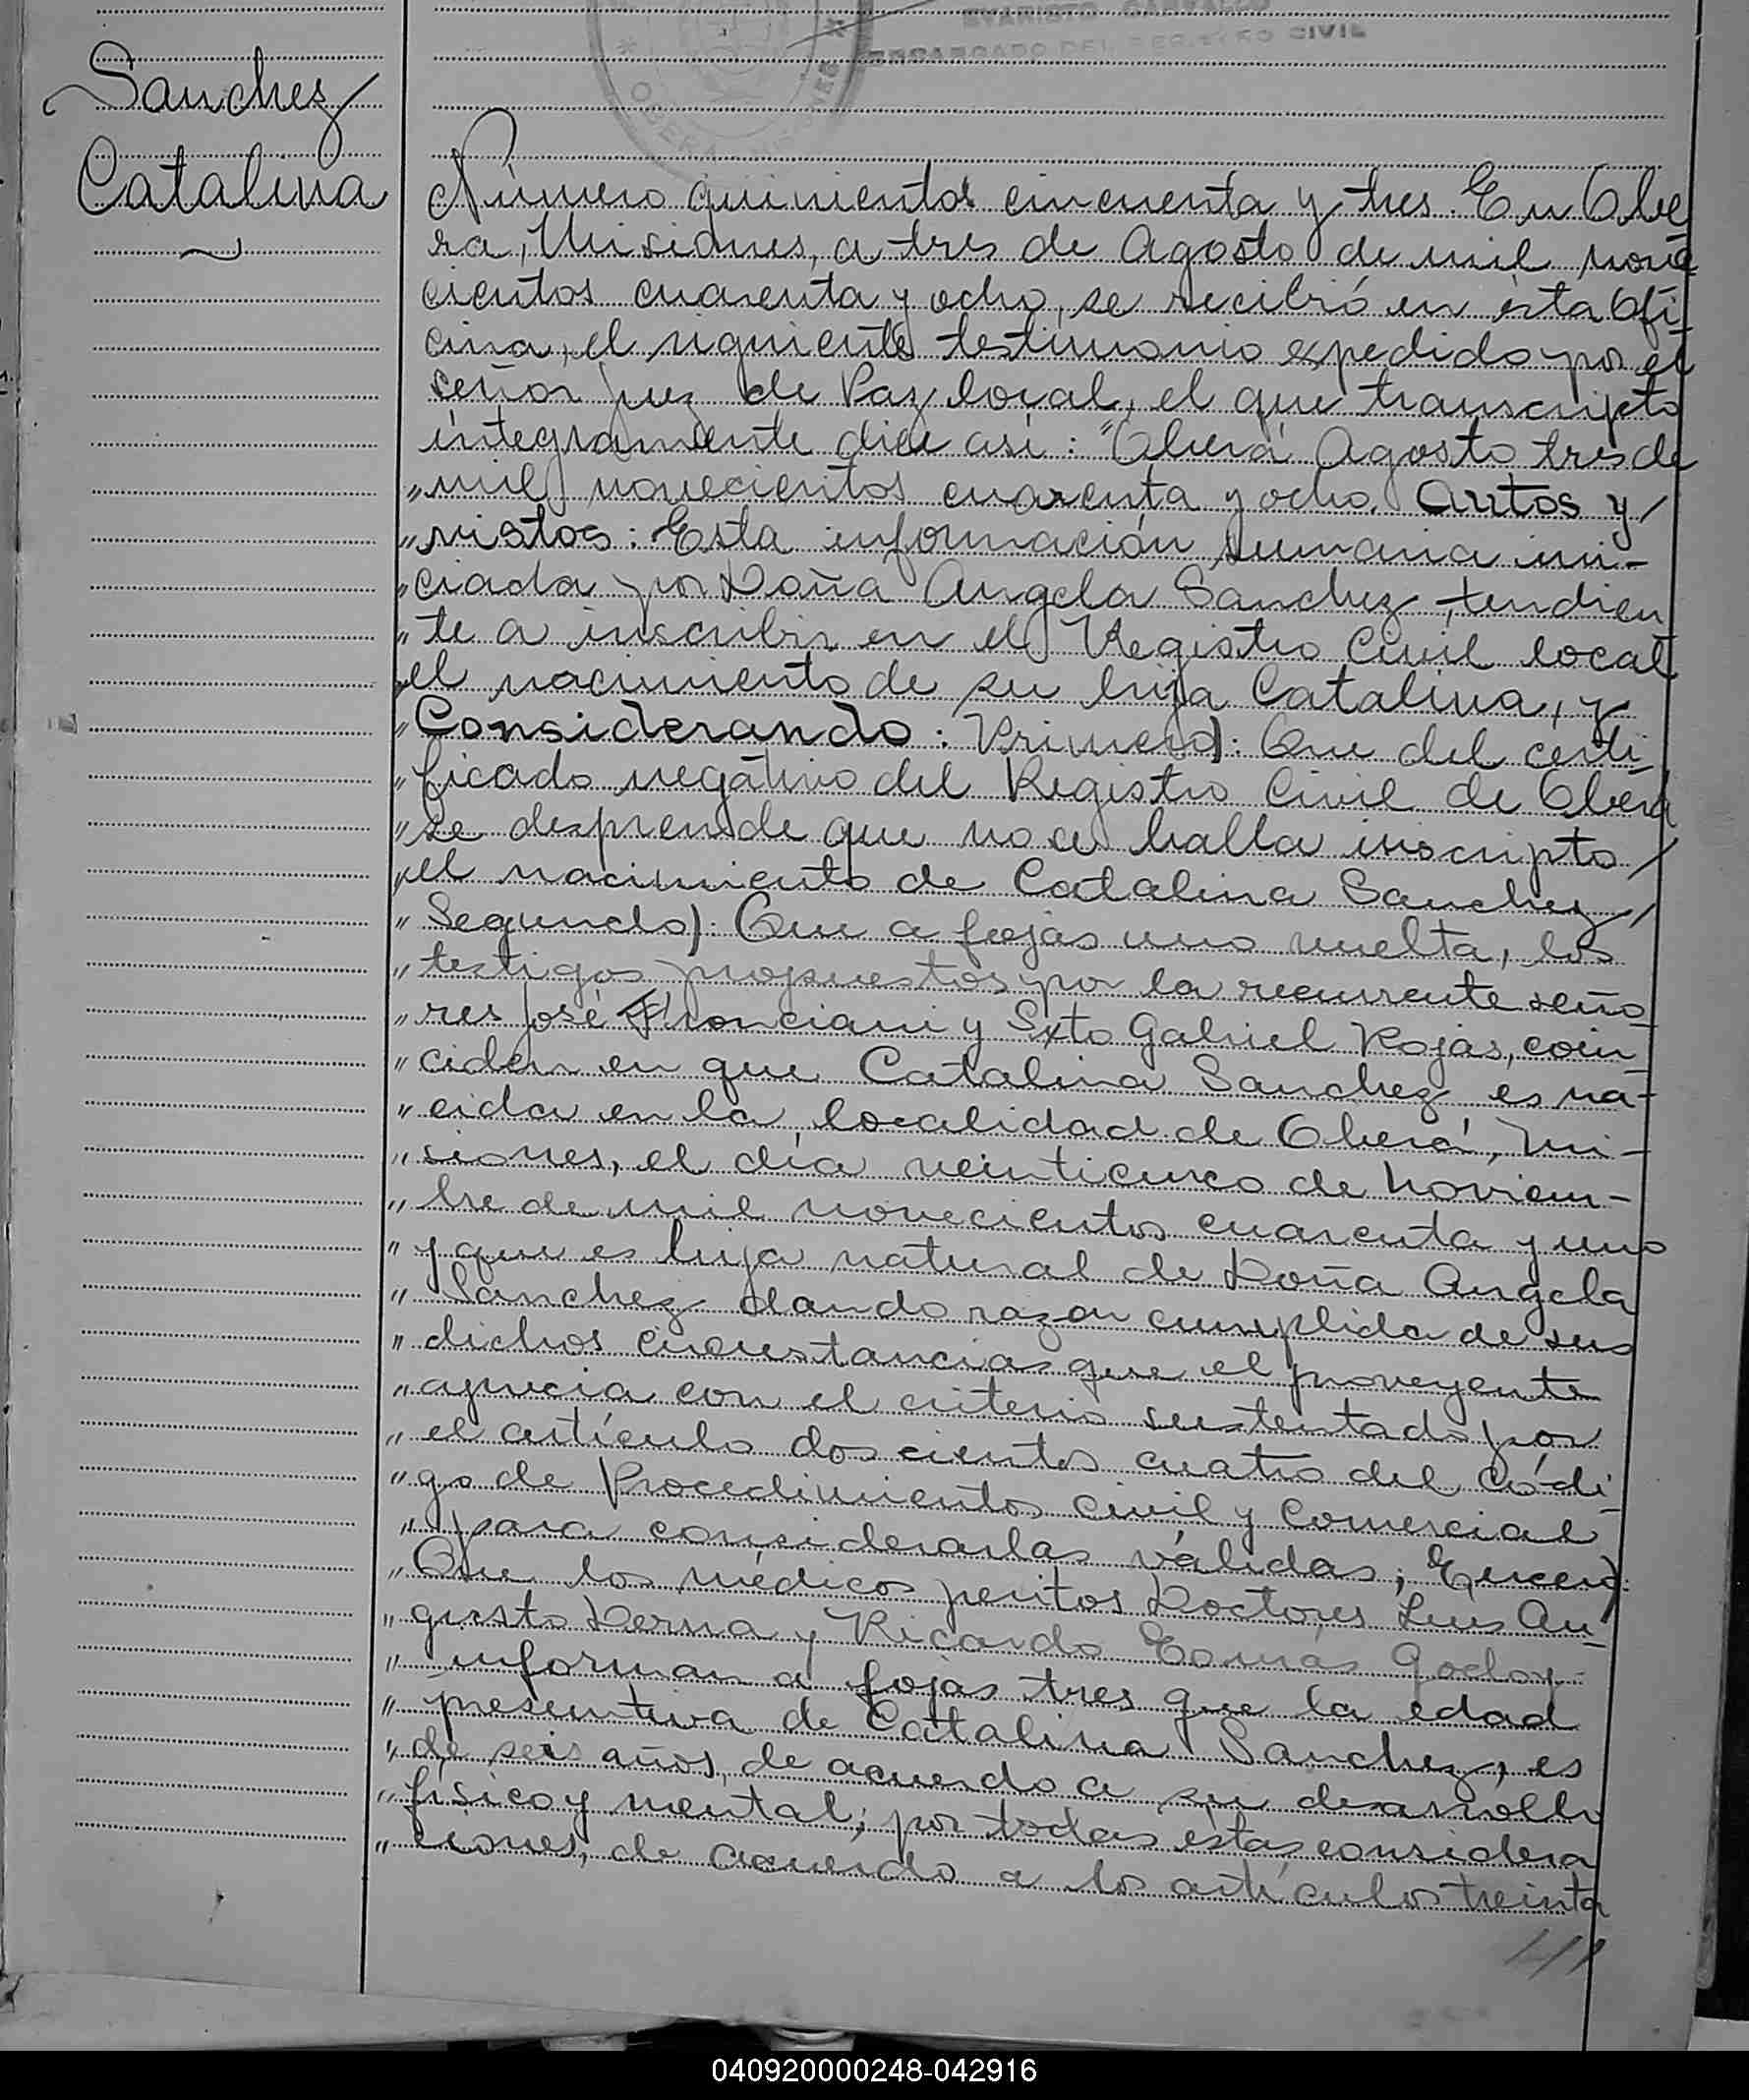 EVARISTO CARVALLO
ENCARGADO DEL REGISTRO CIVIL
OBERA MISIONES
Sanchez
Catalina
Número quinientos cincuenta y tres. En Obe
ra, Misiones, a tres de Agosto de mil nove
cientos cuarenta y ocho, se recibió en ésta Ofi
cina, el siguiente testimonio expedido por el
señor Juez de Paz local, el que transcripto
íntegramente dice así: "Oberá Agosto tres de
" mil novecientos cuarenta y ocho. Autos y
" vistos: Esta información sumaria ini-
" ciada por Doña Angela Sanchez, tendien
" te a inscribir en el Registro Civil local
" el nacimiento de su hija Catalina, y
" Considerando: Primero): Que del certi
" ficado negativo del Registro Civil de Oberá
" se desprende que no se halla inscripto
" el nacimiento de Catalina Sanchez
" Segundo): Que a fojas uno vuelta, los
" testigos propuestos por la recurrente seño
" res José Fronciani y Sixto Gabriel Rojas, coin
" ciden en que Catalina Sanchez es na-
" cida en la localidad de Oberá, Mi-
" siones, el día veinticinco de Noviem-
" bre de mil novecientos cuarenta y uno
" y que es hija natural de Doña Angela
" Sanchez dando razon cumplida de sus
" dichos circustancias que el proveyente
" aprecia con el criterio sustentado por
" el artículo doscientos cuatro del Códi
" go de Procedimientos Civil y Comercial
" para considerarlas válidas; Tercero):
" Que los médicos peritos Doctores Luis Au-
" gusto Derna y Ricardo Tomás Godoy
" informan a fojas tres que la edad
" presuntiva de Catalina Sanchez, es
" de seis años, de acuerdo a su desarrollo
" físico y mental; por todas éstas considera
" ciones, de acuerdo a los artículos treinta
040920000248-042916